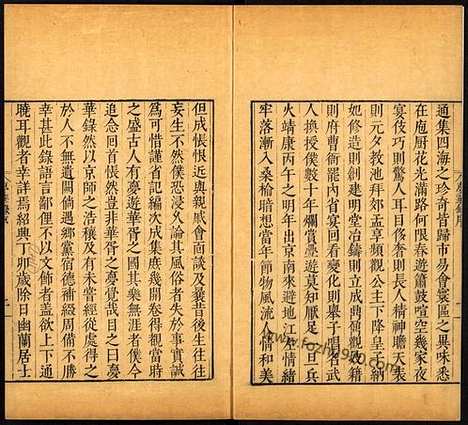 通集四海之珍奇皆歸市易會寰區之異味悉
在庖厨花光滿路何限春遊簫鼓喧空幾家夜
宴伎巧則驚人耳目侈奢則長人精神瞻天表
則元夕教池拜郊孟享頻觀公主下降皇子納
妃修造則創建明堂冶鑄則立成鼎鼐觀妓籍
則府曹衙罷内省宴回觀變化則舉子唱名武
人換授僕數十年爛賞疊遊莫知厭足一旦兵
火靖康丙午之明年出京南來避地江左情緒
牢落漸入桑榆暗想當年節物風流人情和美
但成悵恨近與親戚會面談及曩昔後生往往
妄生不然僕恐浸久論其風俗者失於事實誠
為可惜謹省記編次成集庶幾開卷得覩當時
之盛古人有夢遊華胥之國其樂無涯者僕今
追念回首悵然豈非華胥之夢覺哉目之曰夢
華錄然以京師之浩穰及有未嘗經從處得之
於人不無遺闕倘遇鄉黨宿德補綴周備不勝
幸甚此錄語言鄙俚不以文飾者蓋欲上下通
曉耳觀者幸詳焉紹興丁卯歲除日幽蘭居士